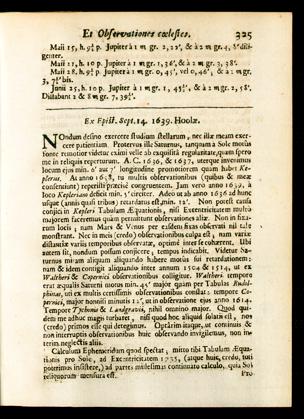 Et Observationes cœlestes. 325
Maii 15, h. 9½ p. Jupiter à 1 ♏ gr. 2, 22′, & à 2 ♏ gr. 4, 8′ dili-
genter.
Maii 21, h. 10 p. Jupiter à 1 ♏ gr. 1, 36′, & à 2 ♏ gr. 3, 38′.
Maii 28. h. 9¾ p. Jupiter à ♏ gr. 0, 45′, vel 0, 46′; & à 2 ♏ gr.
3, 7½′ bis.
Junii 25, h. 10 p. Jupiter à 1 ♏ gr. 1, & à 2 ♏ gr. 2, 58′.
Distabant 2 & 8 ♏ gr. 7,
Ex Epist. Sept. 14. 1639. Hoolæ.
NOndum desino exercere studium stellarum, nec illæ meam exer-
cere patientiam. Posterius illæ Saturnus, tanquam a Sole motus
fonte remotior videtur eximi velle ab exquisitâ regularitate, quam spero
me in reliquis reperturum. A. C. 1636, & 1637, uterque invenimus
locum ejus min. 0′ aut 7′ longitudine promotiorem quam habet Kep-
lerus. At anno 1638, tu multis observationibus (quibus & meæ
consentiunt) reperisti præcisè congruentem. Jam vero anno 1639, à
loco Kepleriano desicit min. 5′ circiter. Adeo ut ab anno 1636 ad hunc
usque (annis quasi tribus) retardatus est, min. 12′. Non potest causa
conjici in Kepleri Tabulam Æquationis, nisi Excentricitatem multo
majorem faceremus quam permittunt observationes aliæ. Non in fixa-
rum locis; nam Mars & Venus per easdem fixas observati nil tale
monstrant. Nec in meis (credo) observationibus culpa est, nam variæ
distantiæ variis temporibus observatæ, optimè inter se cohærent. Ubi
autem sit, nondum possum conjicere, tempus indicabit. Videtur Sa-
turnus miram aliquam aliquando habere motus sui retardationem:
nam & idem contigit aliquando inter annum 1504 & 1514, ut ex
Waltheri & Copernici observationibus colligitur. Waltheri tempore
erat æqualis Saturni motus min. 45′ major quam per Tabulas Rudol-
phinas, ut ex multis certissimis observationibus constat: tempore Co-
pernici, major nonnisi minutis 12′, ut in observatione ejus anno 1514.
Tempore Tychonis & Landgravii, nihil omnino major. Quod qui-
dem me adhuc magis turbaret, nisi quod hoc aliquid solatii est, non
(credo) primos esse qui detegimus. Optarim itaque, ut continuis &
non interruptis observationibus huic observando invigilemus, non me-
terim neglectis aliis.
Calculum Ephemeridum quod spectat, mitto tibi Tabulam Æqua-
tionis pro Sole, ad Excentricitatem 1735, (atque huic, credo, tuti
poterimus insistere,) ad partes medesimas continuato calculo, quia Sol
reliquorum mensura est. Pro